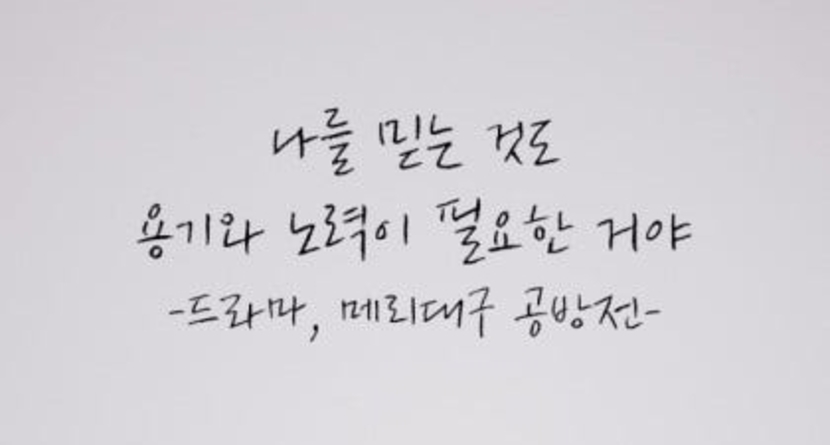 나를 믿는 것도
용기와 노력이 필요한 거야
-드라마, 메리대구 공방전-